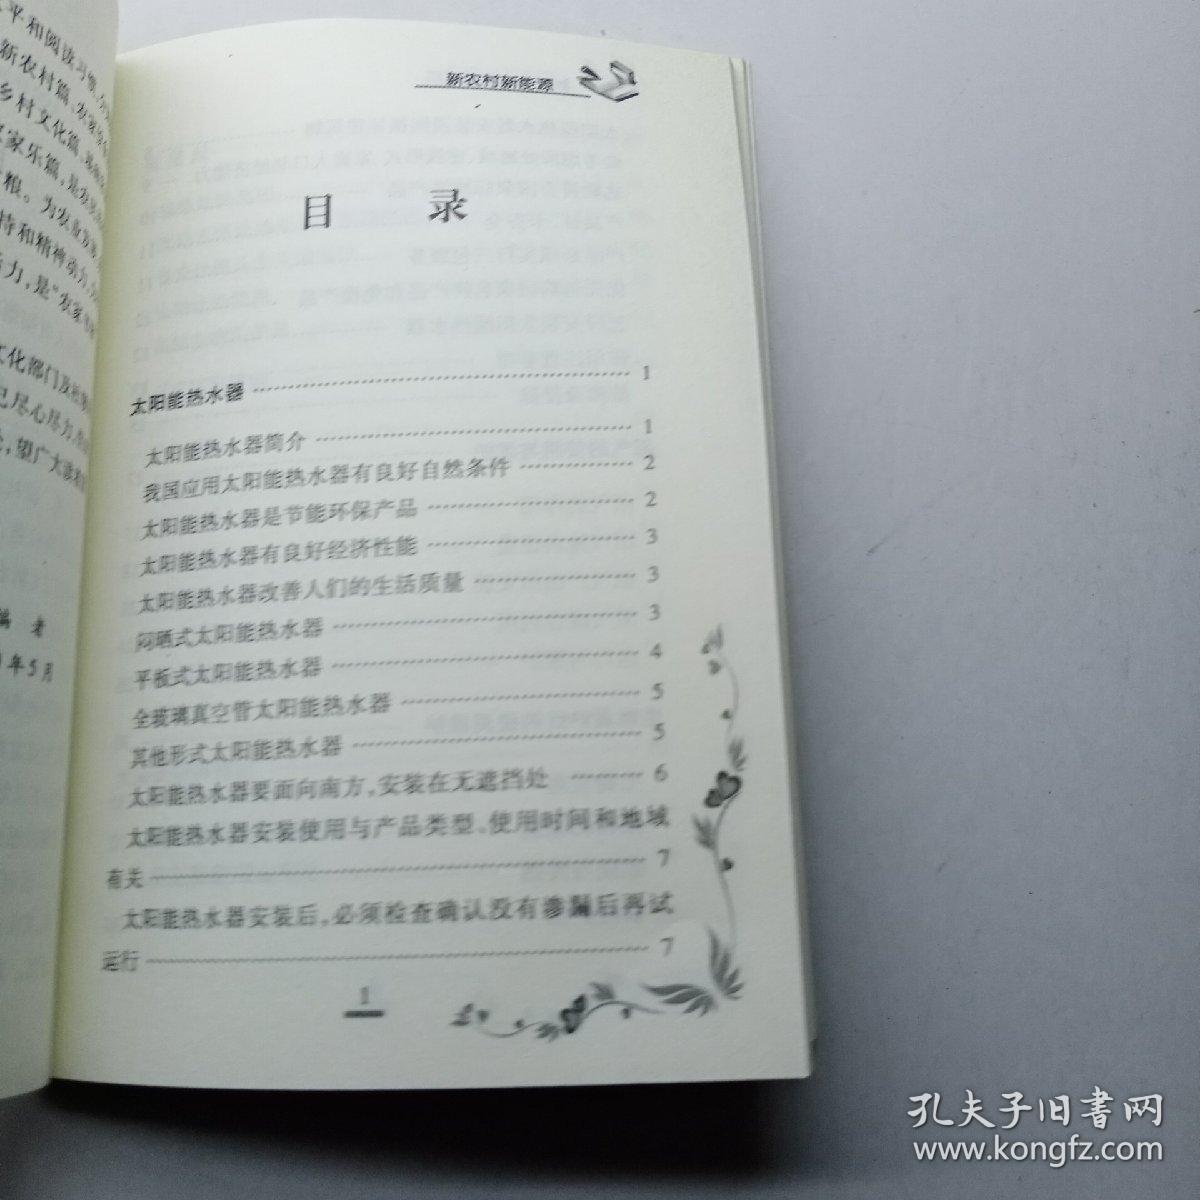 平和阅读习惯
新农村篇、农家
乡村文化篇
家乐篇,是农
粮。为农业
持和精神动力
力,是“农家
文化部门及
已尽心尽力
,望广大读
编 者
年5月
新农村新能源
目 录
太阳能热水器 …… 1
太阳能热水器简介 …… 1
我国应用太阳能热水器有良好自然条件 …… 2
太阳能热水器是节能环保产品 …… 2
太阳能热水器有良好经济性能 …… 3
太阳能热水器改善人们的生活质量 …… 3
闷晒式太阳能热水器 …… 3
平板式太阳能热水器 …… 4
全玻璃真空管太阳能热水器 …… 5
其他形式太阳能热水器 …… 5
太阳能热水器要面向南方,安装在无遮挡处 …… 6
太阳能热水器安装使用与产品类型、使用时间和地域
有关 …… 7
太阳能热水器安装后,必须检查确认没有渗漏后再试
运行 …… 7
1
孔夫子旧书网
www.kongfz.com